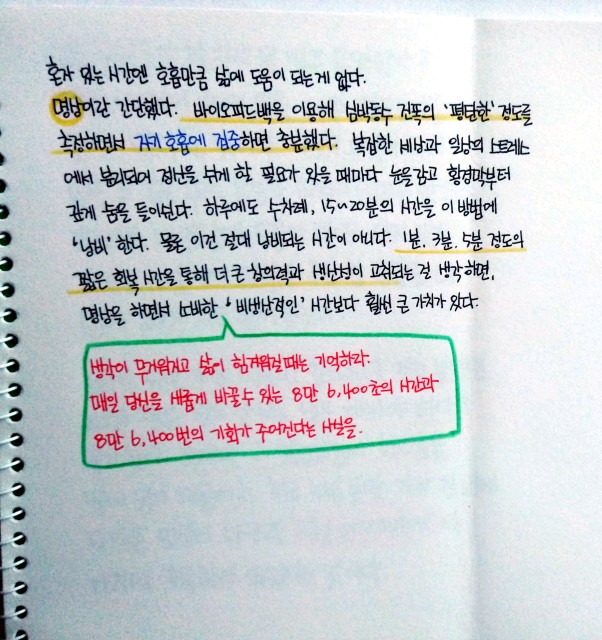 혼자 있는 시간엔 호흡만큼 삶에 도움이 되는게 없다.
명상이란 간단했다. 바이오피드백을 이용해 심박동수 진폭의 '평탄한' 정도를
측정하면서 자기 호흡에 집중하면 충분했다. 복잡한 세상과 일상의 스트레스
에서 분리되어 정신을 쉬게 할 필요가 있을 때마다 눈을감고 횡경막부터
깊게 숨을 들이쉰다. 하루에도 수차례, 15~20분의 시간을 이 방법에
'낭비'한다. 물론 이건 절대 낭비되는 시간이 아니다. 1분, 3분, 5분 정도의
짧은 회복 시간을 통해 더 큰 창의력과 생산성이 고취되는 걸 생각하면,
명상을 하면서 소비한 '비생산적인' 시간보다 훨씬 큰 가치가 있다.
생각이 무거워지고 삶이 힘겨워질때는 기억하라.
매일 당신을 새롭게 바꿀수 있는 8만 6,400초의 시간과
8만 6,400번의 기회가 주어진다는 사실을.